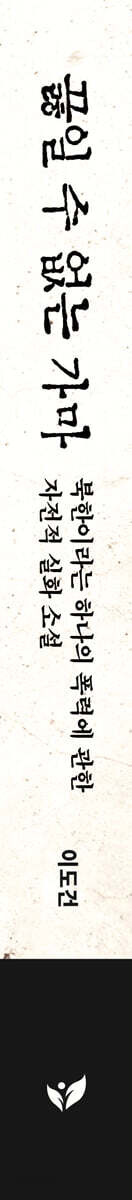 끓일 수 없는 가마
북한이라는 하나의 폭력에 관한
자전적 실화 소설
이도건